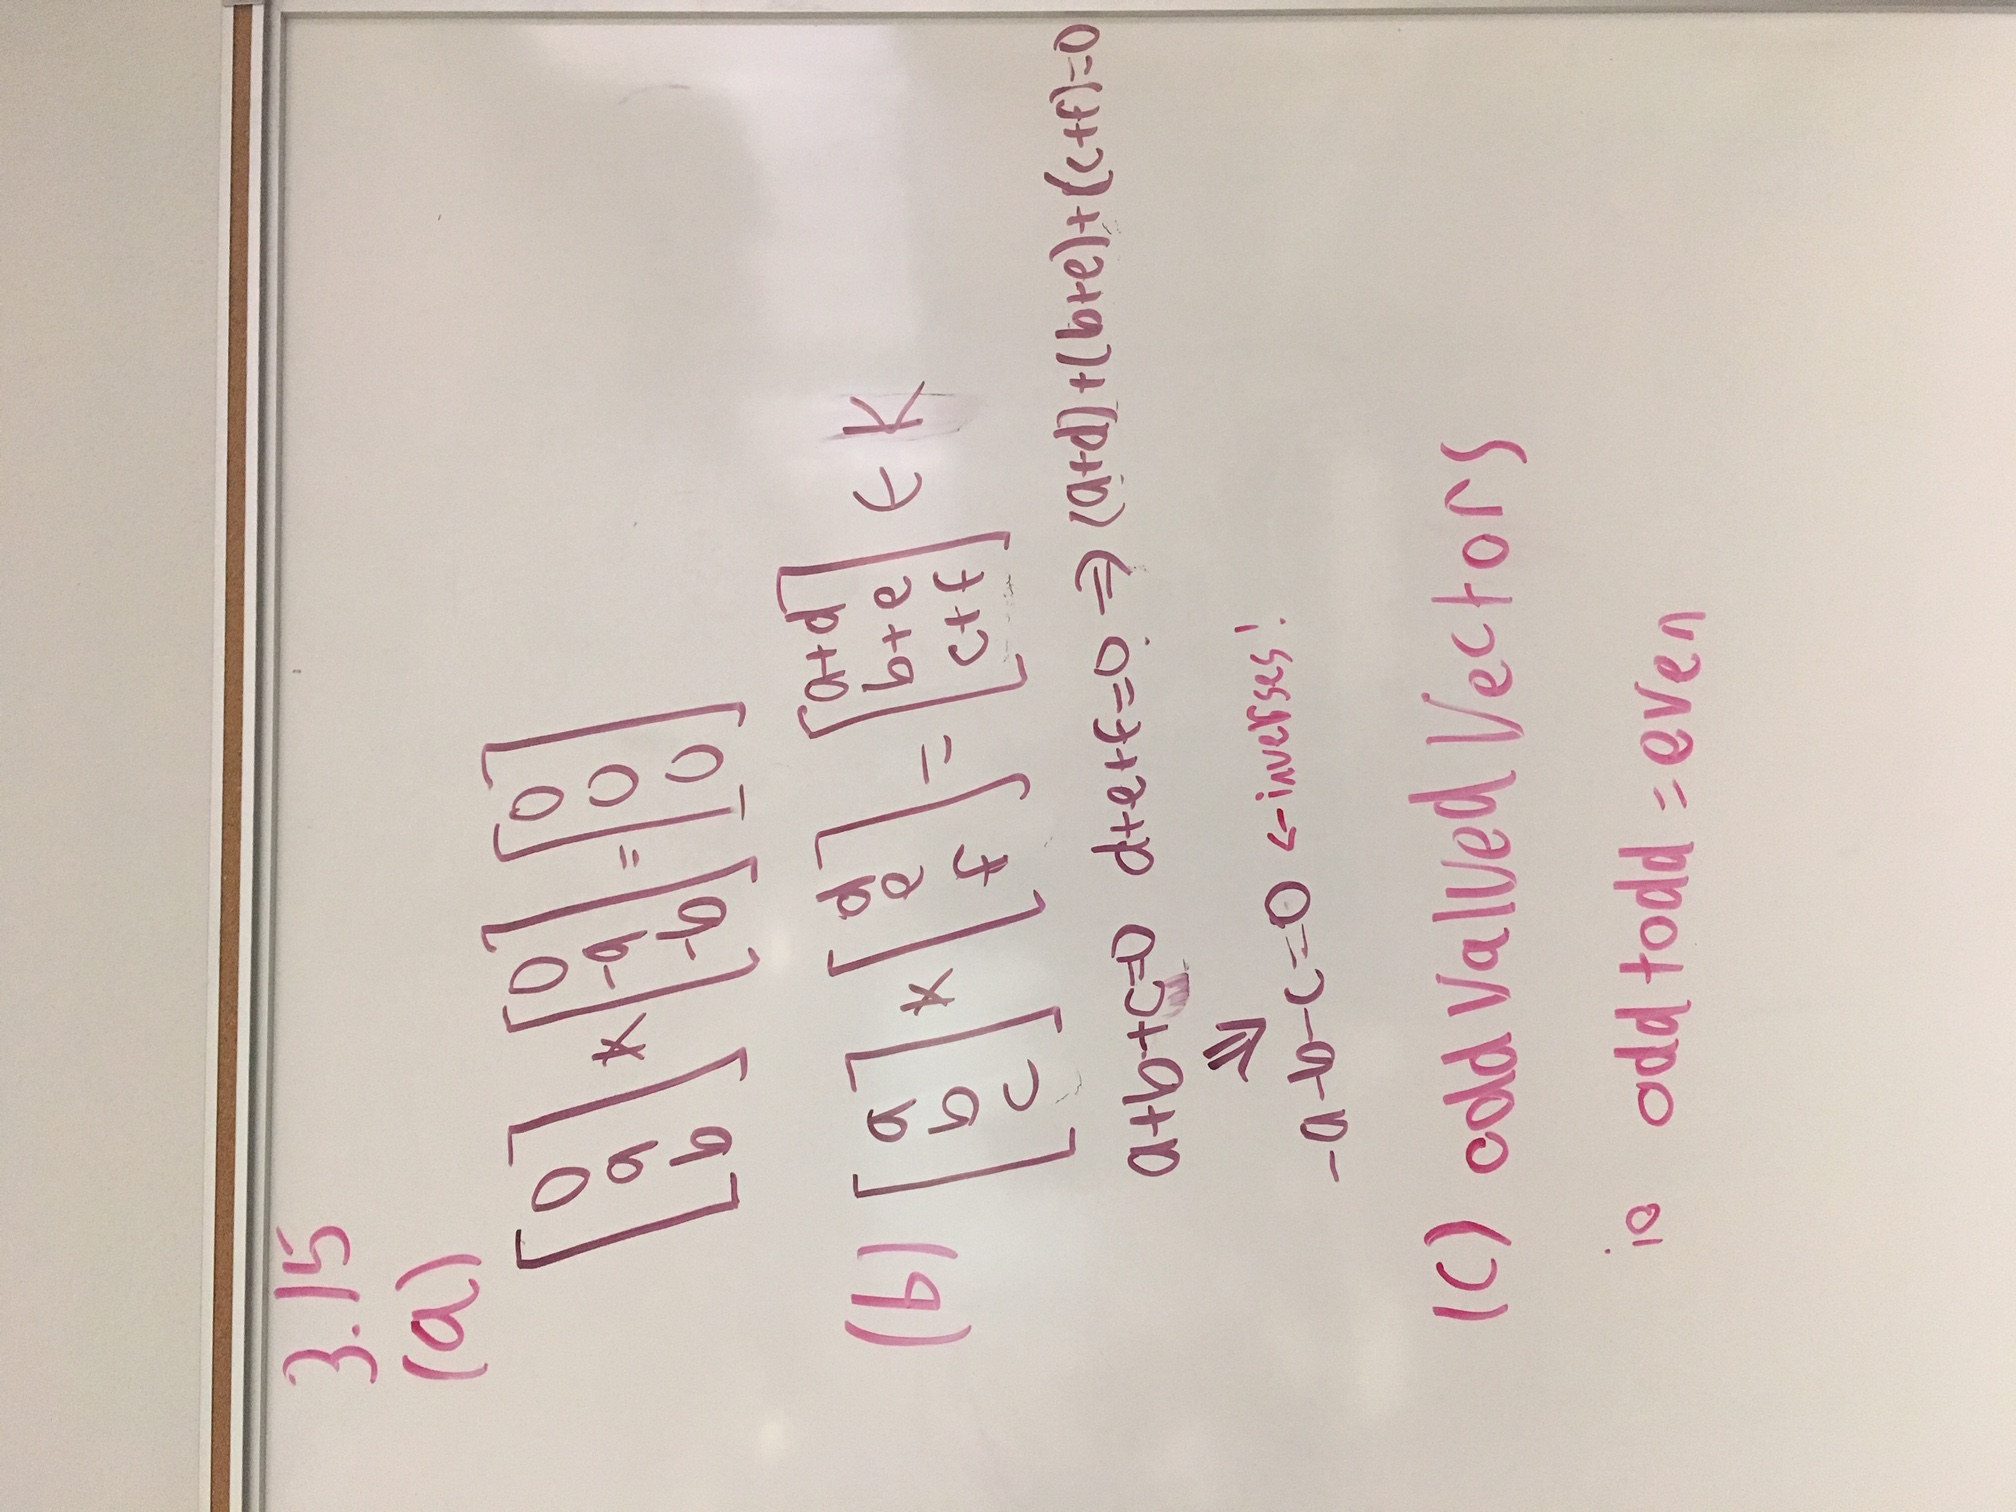 3.15
(a)
[0 a b] * [0 -a -b] = [0 0 0]
(b) [a b c] * [d e f] = [a+d b+e c+f] ∈ K
a+b+c=0 d+e+f=0 ⇒ (a+d)+(b+e)+(c+f)=0
⇓
-a-b-c=0 ← inverses!
(c) odd Valued Vectors
ie odd + odd = even